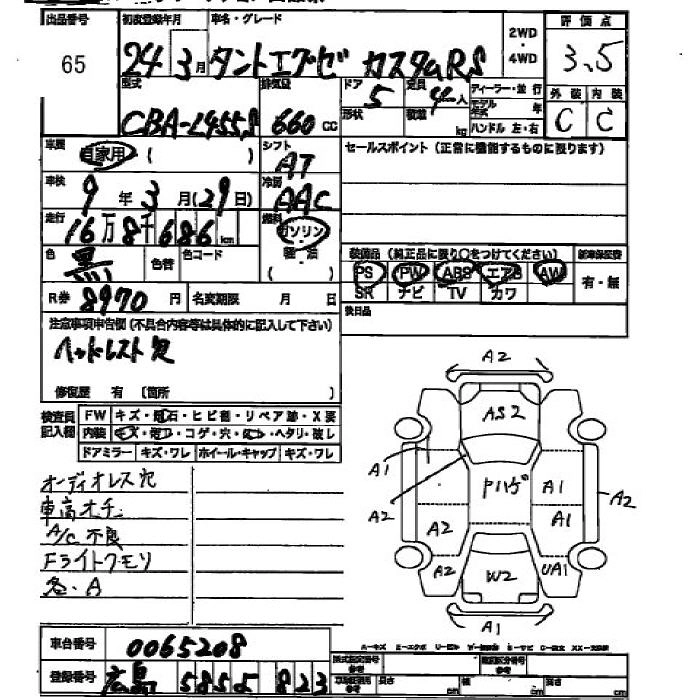 出品番号 65
初度登録年月 24年 3月
車名・グレード タントエグゼ カスタムRS
2WD ・ 4WD
評価点 3.5
外装 C 内装 C
型式 CBA-L455S
排気量 660 cc
ドア 5 形状
定員 4人 積載 kg
ディーラー・並行
モデル年式 年
ハンドル 左・右
車歴 自家用 ( )
シフト AT
車検 9年 3月(29日)
冷房 AAC
走行 16万8千686km
燃料 ガソリン 軽油 ( )
色 黒 色替 色コード
R券 8970円 名変期限 月 日
セールスポイント(正常に機能するものに限ります)
装備品(純正品に限り○をつけてください)
PS PW ABS エアB AW
SR ナビ TV カワ
新車保証書 有・無
後日品
注意事項申告欄(不具合内容等は具体的に記入して下さい)
ヘッドレスト欠
修復歴 有 〔箇所 〕
検査員記入欄
FW キズ・飛石・ヒビ割・リペア跡・X要
内装 キズ・汚レ・コゲ・穴・ ・ヘタリ・破レ
ドアミラー キズ・ワレ ホイール・キャップ キズ・ワレ
オーディオレス欠
車高オチ
A/C不良
Fライトクモリ
各・A
A2
AS2
A1
A2
Pハゲ
A1
A1
A2
A2
A2
W2
UA1
A1
車台番号 0065208
登録番号 広島 585 よ 823
型式指定番号 類別区分番号
長さ cm 幅 cm 高さ cm